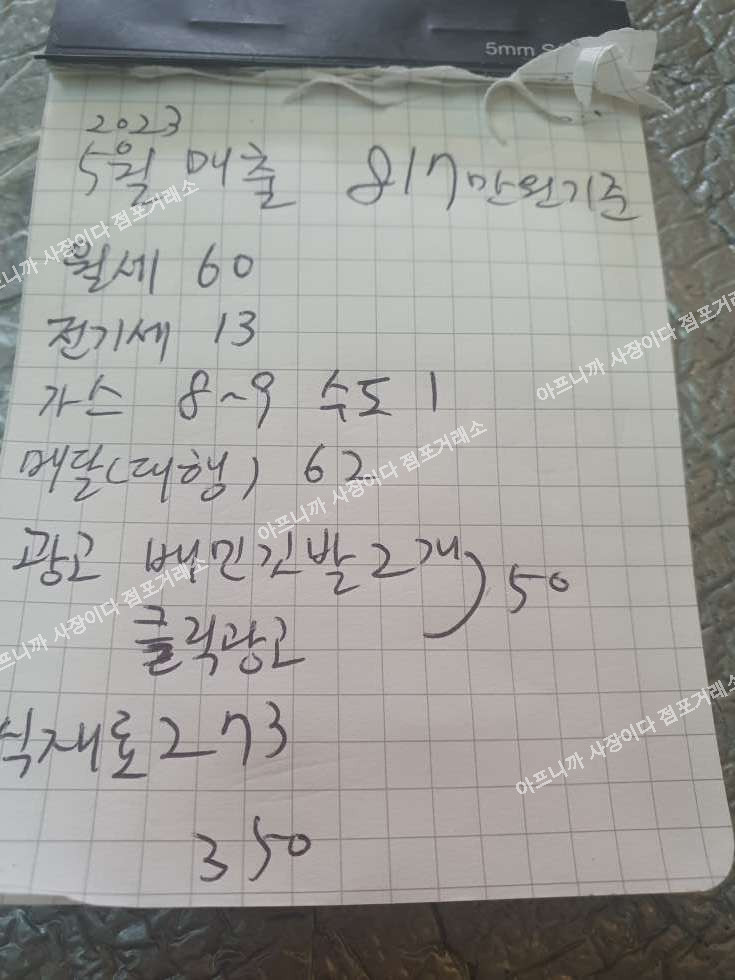 5mm S
2023
5월 매출 817만원기준
월세 60
전기세 13
가스 8~9 수도 1
배달(대행) 62
광고 배민깃발2개) 50
클릭광고
식재료 273
350
아프니까 사장이다 점포거래소
아프니까 사장이다 점포거래소
아프니까 사장이다 점포거래소
아프니까 사장이다 점포거래소
아프니까 사장이다 점포거래소